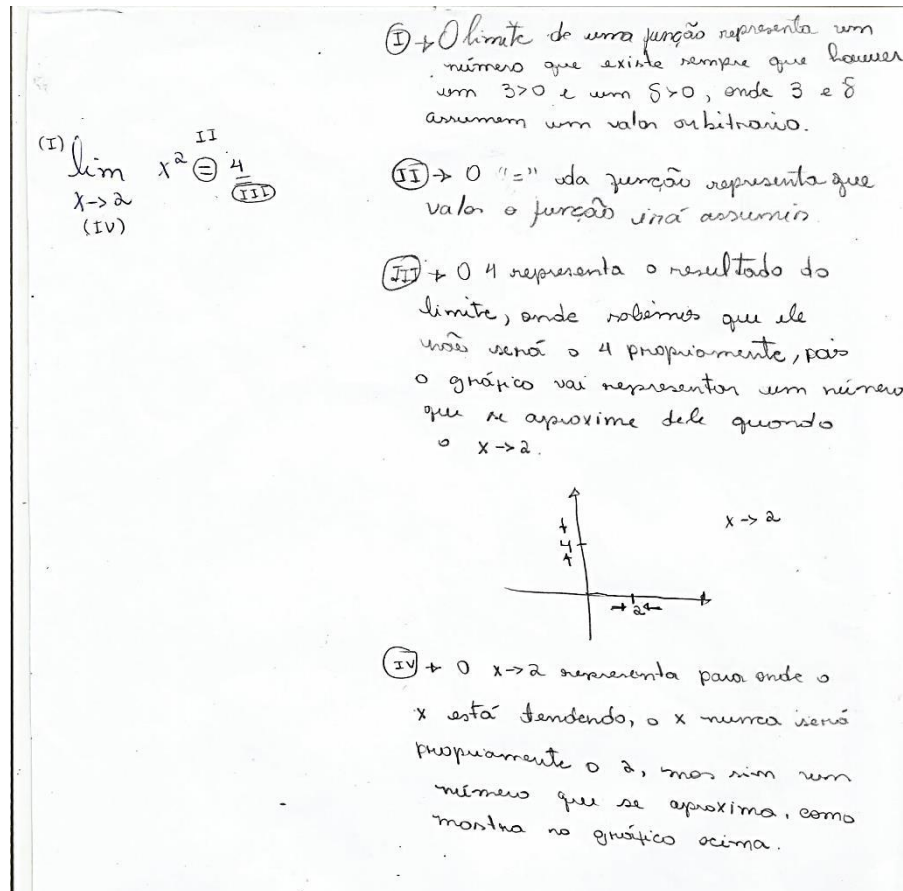 (I) lim x² = 4
II
III
x→2
(IV)
I → O limite de uma função representa um
número que existe sempre que houver
um 3>0 e um δ>0, onde 3 e δ
assumem um valor arbitrario.
II → O "=" da função representa que
valor a função irá assumir.
III → O 4 representa o resultado do
limite, onde sabemos que ele
não será o 4 propriamente, pois
o gráfico vai representar um número
que se aproxime dele quando
o x→2.
x→2
4
→2←
IV → O x→2 representa para onde o
x está tendendo, o x nunca será
propriamente o 2, mas sim um
número que se aproxima, como
mostra no gráfico acima.